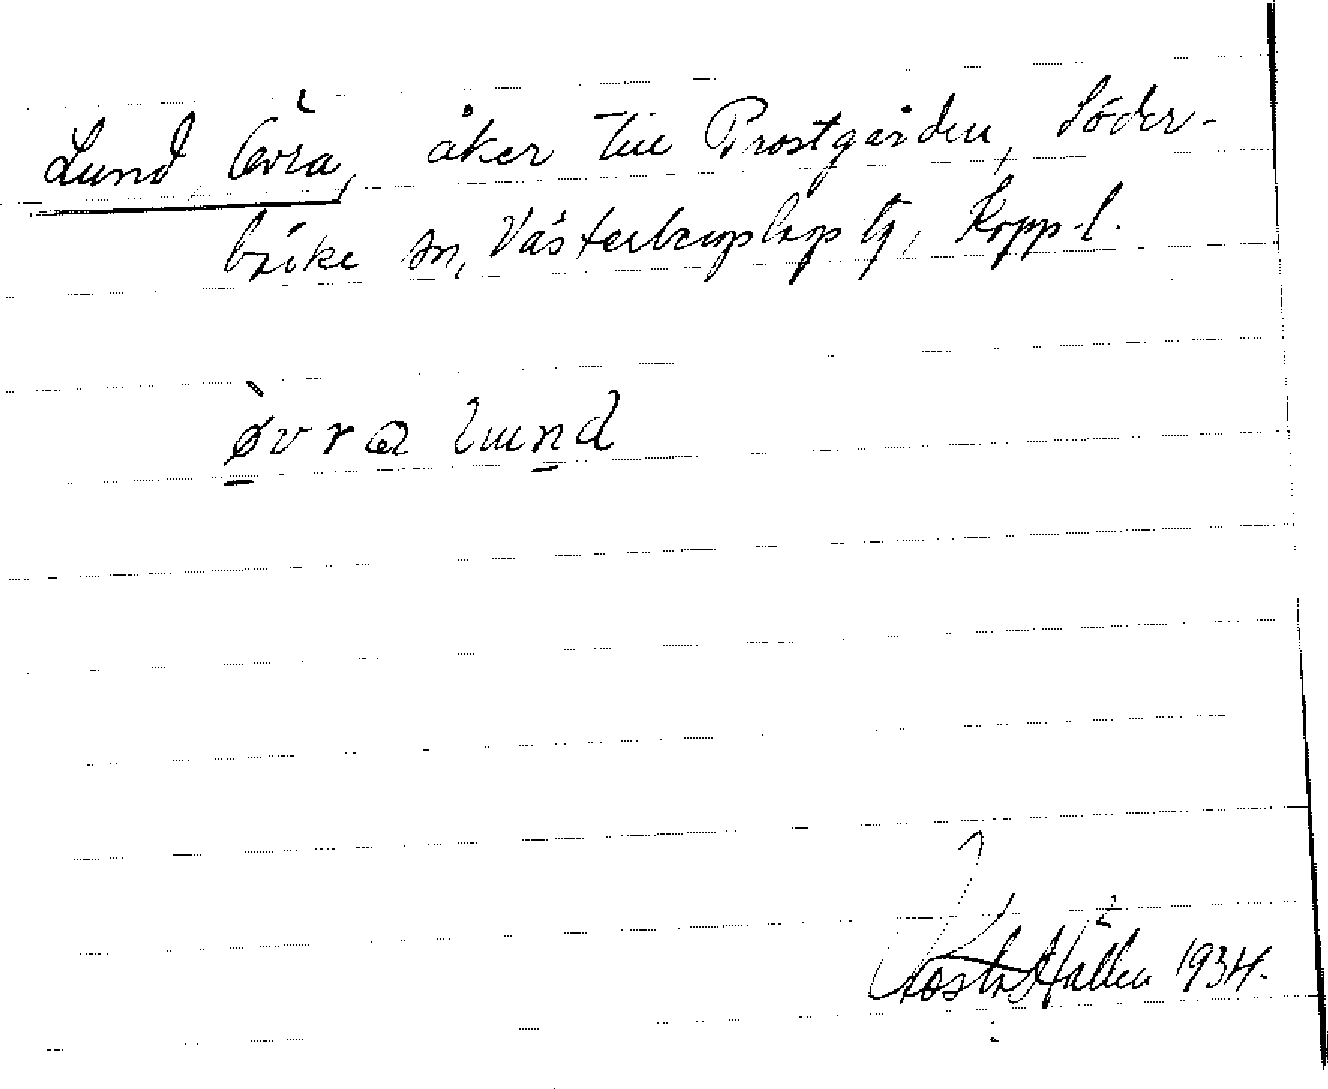 Lund, Övra, åker till Prostgården, Söder-
bärke sn, Västerbergslags tg, Kopp. l.
øvra lund
Gösta Hallén 1934.